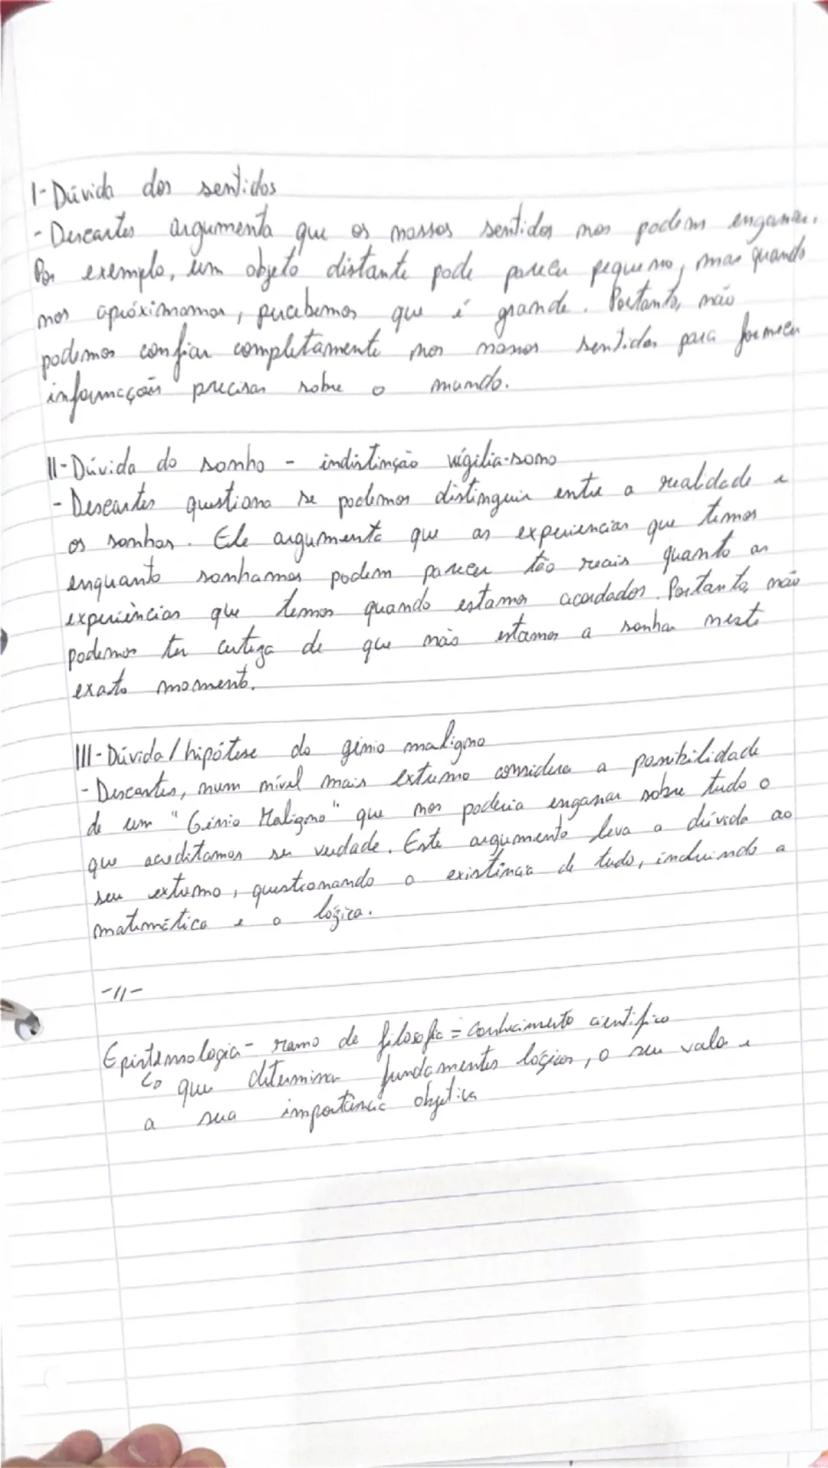 I- Dúvida dos sentidos
- Descartes argumenta que os nossos sentidos nos podem enganar.
Por exemplo, um objeto distante pode parecer pequeno, mas quando
nos apróximamos, percebemos que é grande. Portanto, não
podemos confiar completamente nos nossos sentidos para fornecer
informações precisas sobre o mundo.
II- Dúvida do sonho - indistinção vigília-sono
- Descartes questiona se podemos distinguir entre a realdade e
os sonhos. Ele argumenta que as experiencias que temos
enquanto sonhamos podem parecer tão reais quanto as
experiências que temos quando estamos acordados. Portanto, não
podemos ter certeza de que não estamos a sonhar neste
exato momento.
III- Dúvida/hipótese do génio maligno
- Descartes, num nível mais extremo considera a possibilidade
de um "Génio Maligno" que nos poderia enganar sobre tudo o
que acreditamos ser verdade. Este argumento leva a dúvida ao
seu extremo, questionando a existência de tudo, incluindo a
matemática e a lógica.
-//-
Epistemologia- ramo de filosofia = conhecimento cientifico
↳ o que determina fundamentos lógicos, o seu valor e
a sua importância objetiva